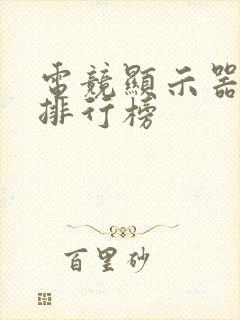 電競顯示器
排行榜
百里砂